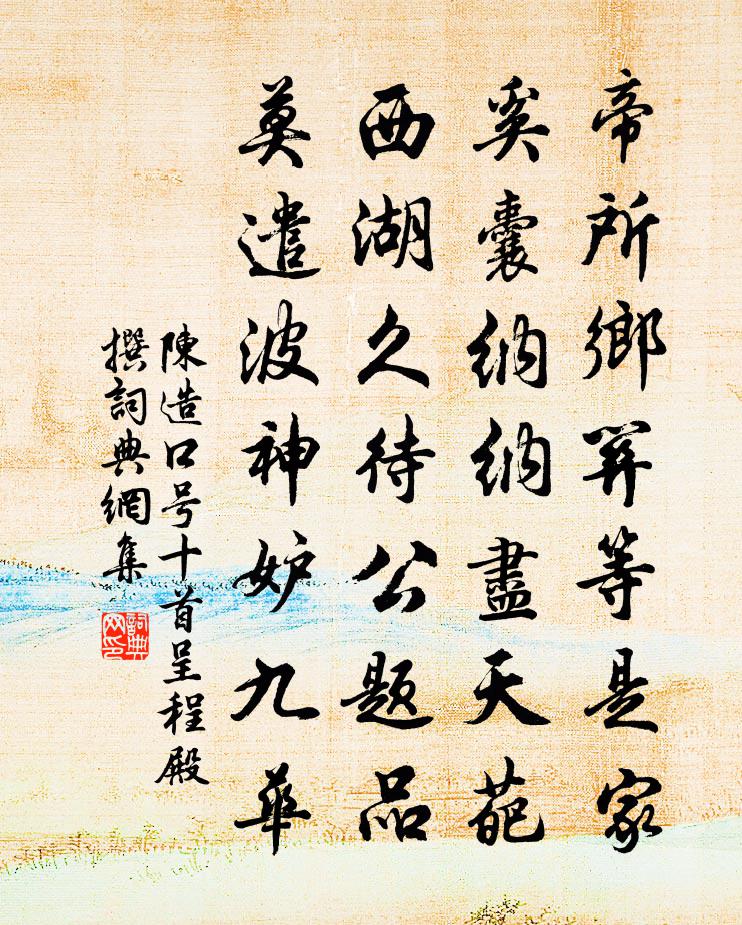 帝所鄉關等是家
奚囊納納盡天葩
西湖久待公題品
莫遣波神妒九華
陳造口号十首呈程殿
撰詞典網集
詞典
网印